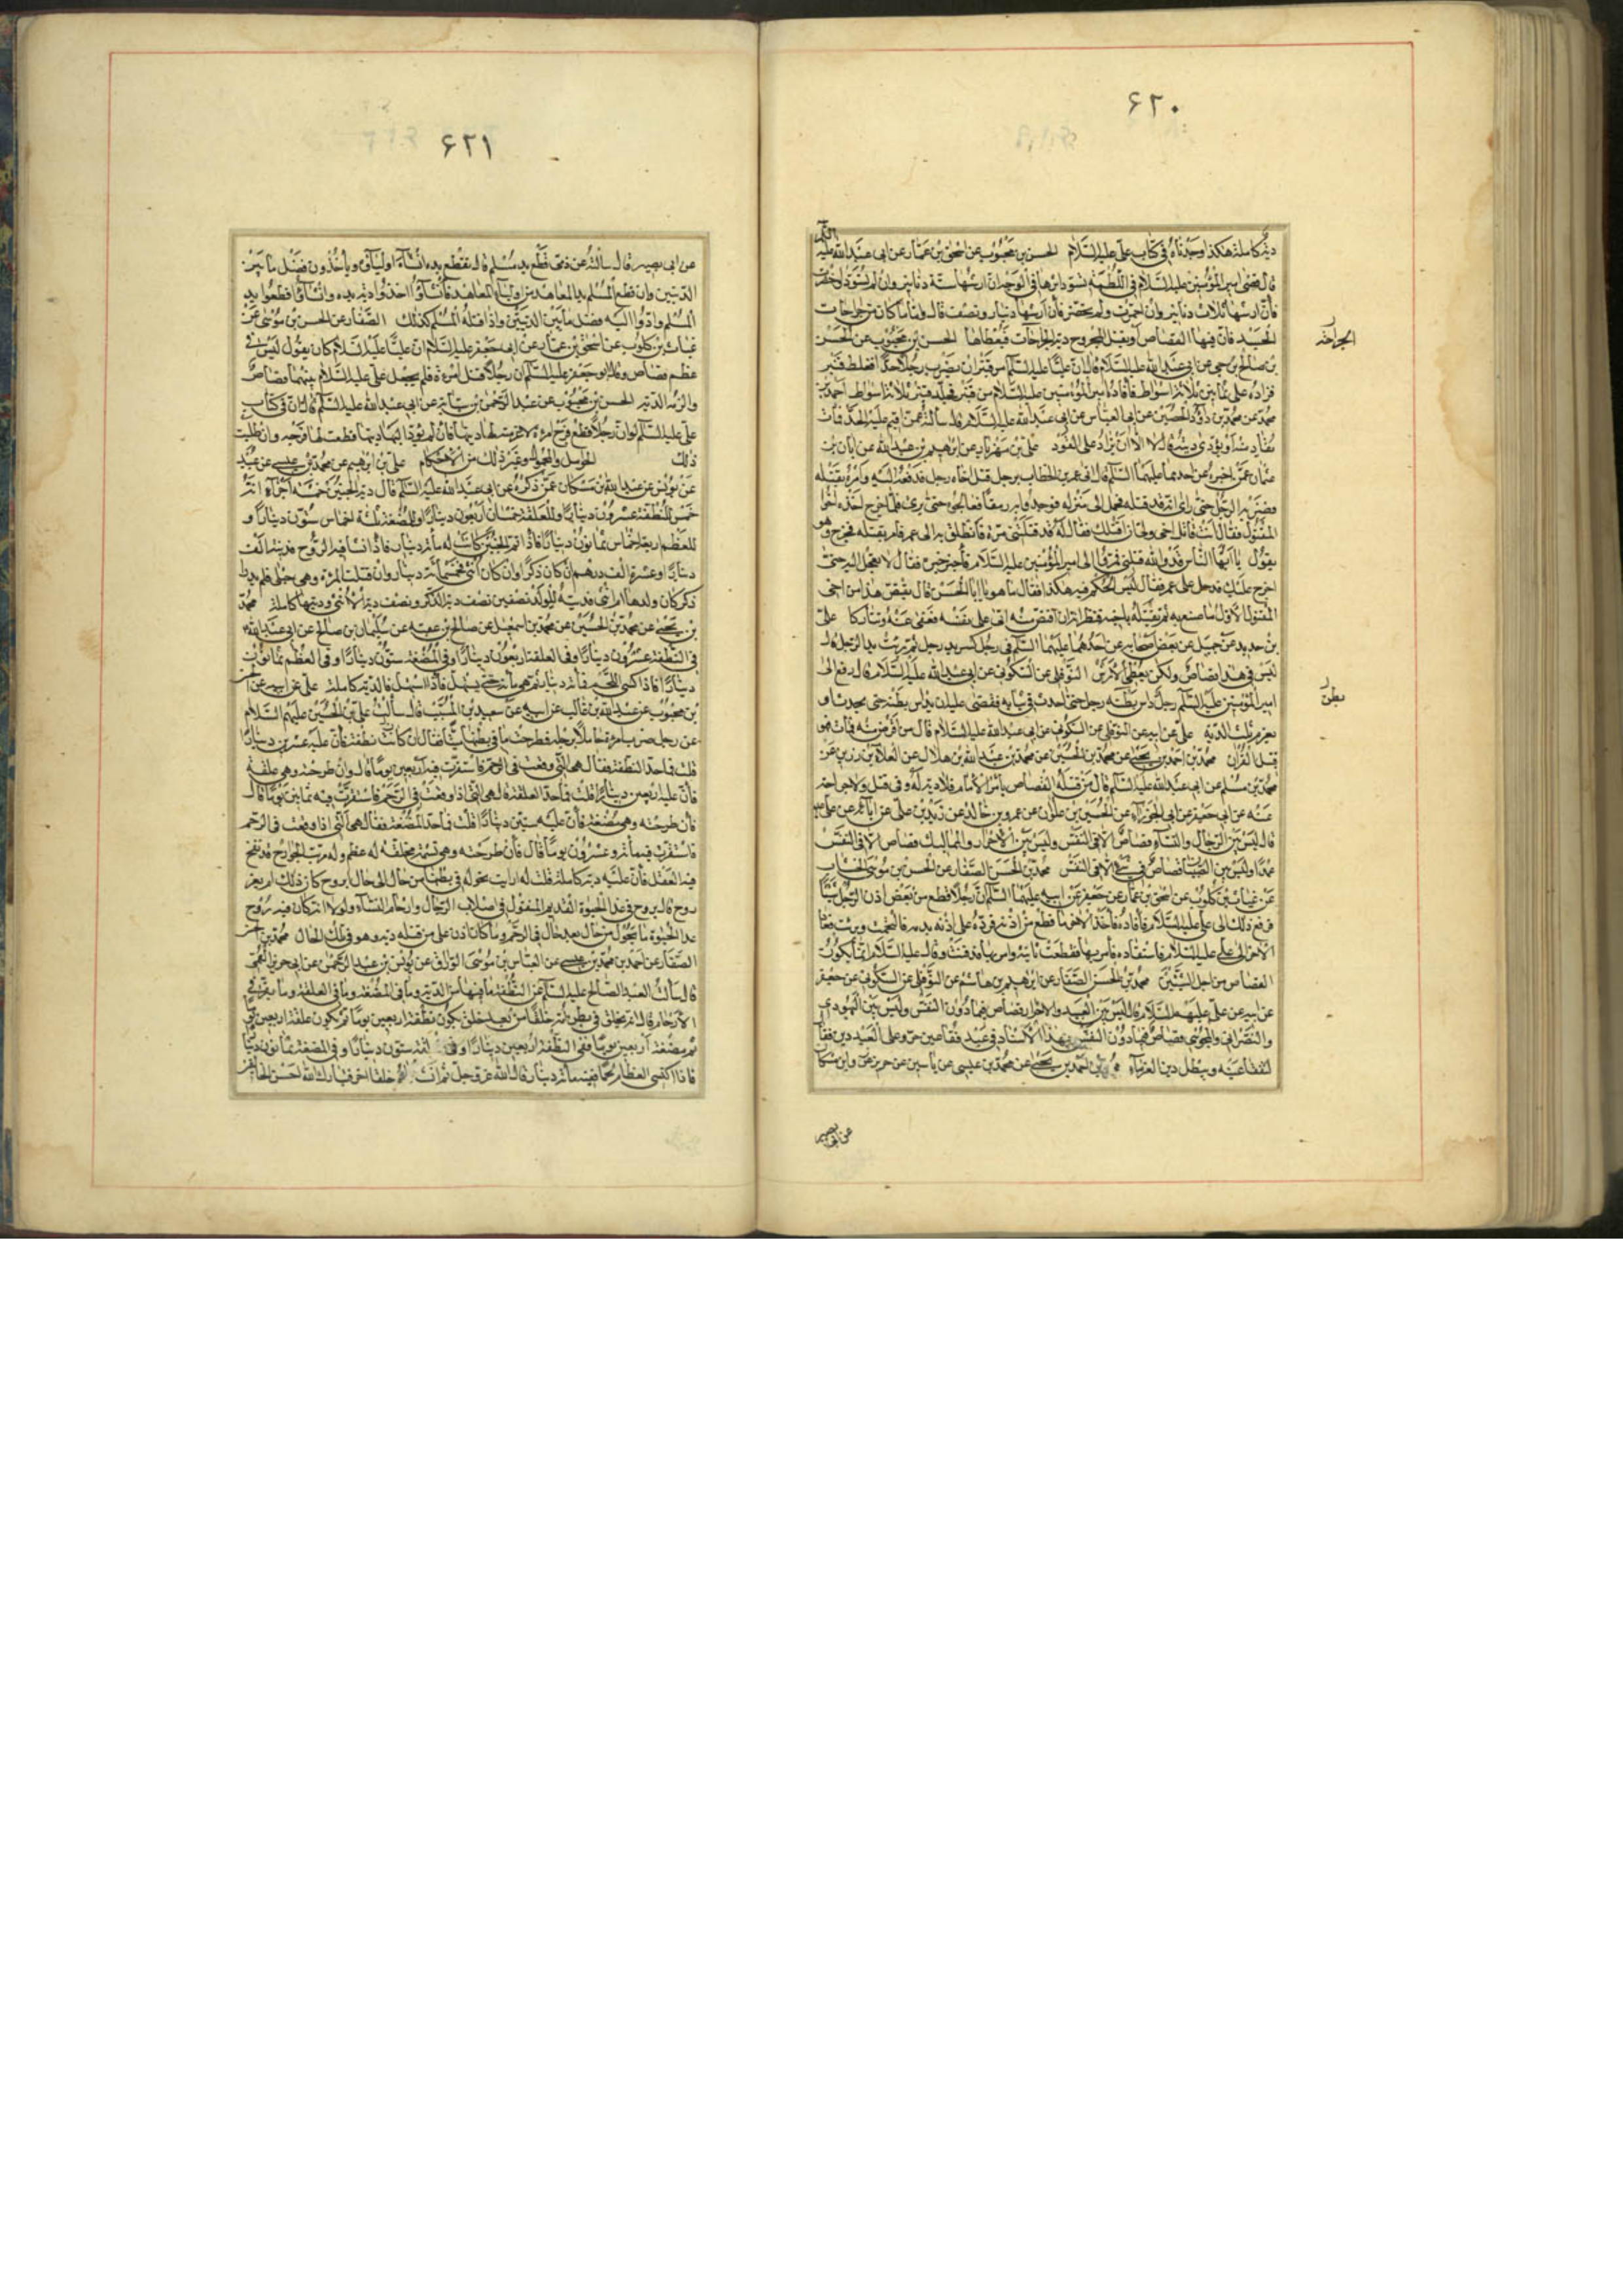 ۶۲۰
دية كاملة هكذا وجدناه فى كتاب على عليه السلام الحسن بن محبوب عن اسحق بن عمار عن ابى عبد الله عليه السلام
قال قضى امير المؤمنين عليه السلام فى اللطمة يسود اثرها فى الوجه ان ارشها ستة دنانير وان لم تسود واخضرت
فان ارشها ثلاث دنانير وان احمرت ولم تخضر فان ارشها دينار ونصف قال واما ما كان من جراحات
الجسد فان فيها القصاص او يقبل المجروح دية الجراحات فيعطاها الحسن بن محبوب عن الحسن
الجراحة
بن صالح بن حى عن ابى عبد الله عليه السلام قال ان عليا عليه السلام امر قنبر ان يضرب رجلا حدا فغلط قنبر
فزاده على ثمانين ثلاثة اسواط فاقاده امير المؤمنين عليه السلام من قنبر فجلد قنبر ثلاثة اسواط احمد بن
محمد عن محمد بن داود الحصين عن ابى العباس عن ابى عبد الله عليه السلام قال سالته عمن اقيم عليه الحد فمات
يقاد منه او يؤدى ديته قال لا الا ان يزاد على القود على بن مهزيار عن ابرهيم بن عبد الله عن ابان بن
عثمان عمن اخبره عن احدهما عليهما السلام قال اتى عمر بن الخطاب برجل قتل اخا رجل فدفعه اليه وامره بقتله
فضربه الرجل حتى راى انه قد قتله فحمل الى منزله فوجدوا به رمقا فعالجوه حتى برئ فلما خرج اخذه اخو
المقتول فقال انت قاتل اخى ولى ان اقتلك فقال له قد قتلتنى مرة فانطلق به الى عمر فامر بقتله فخرج وهو
يقول يا ايها الناس قد والله قتلنى فمروا الى امير المؤمنين عليه السلام فاخبره خبره فقال لا تعجل اليه حتى
اخرج عليك فدخل على عمر فقال ليس الحكم فيه هكذا فقال ما هو يا ابا الحسن قال يقتص هذا من اخى
المقتول الاول ما صنع به ثم يقتله باخيه فنظر انه ان اقتص منه اتى على نفسه فعفى عنه وتتاركا على
بن حديد عن جميل عن بعض اصحابه عن احدهما عليهما السلام فى رجل كسر يد رجل ثم برئت يد الرجل قال
ليس فى هذا قصاص ولكن يعطى الارش النوفلى عن السكونى عن ابى عبد الله عليه السلام قال رفع الى
امير المؤمنين عليه السلام رجل داس بطنه رجل حتى احدث فى ثيابه فقضى عليه ان يداس بطنه حتى يحدث او
بطن
يغرم ثلث الدية على عن ابيه عن النوفلى عن السكونى عن ابى عبد الله عليه السلام قال من اقتص منه فمات فهو
قتيل القران محمد بن احمد بن يحيى عن محمد بن الحسين عن محمد بن عبد الله بن هلال عن العلا بن رزين عن
محمد بن مسلم عن ابى عبد الله عليه السلام قال من قتله القصاص بامر الامام فلا دية له فى قتل ولا جراحة
عنه عن ابى جعفر عن ابى الجوزاء عن الحسين بن علوان عن عمرو بن خالد عن زيد بن على عن ابائه عن على
قال ليس بين الرجال والنساء قصاص الا فى النفس وليس بين الاحرار والمماليك قصاص الا فى النفس
عمدا وليس بين الصبيان قصاص فى شئ الا فى النفس محمد بن الحسن الصفار عن الحسن بن موسى الخشاب
عن غياث بن كلوب عن اسحق بن عمار عن جعفر عن ابيه عليهما السلام ان رجلا قطع من بعض اذن الرجل شيئا
فرفع ذلك الى على عليه السلام فاقاده فاخذ الاخر ما قطع من اذنه فرده على اذنه بدمه فالتحمت وبرئت فعاد
الاخر الى على عليه السلام فاستقاده فامر بها فقطعت ثانية وامر بها فدفنت وقال عليه السلام انما يكون
القصاص من اجل الشين محمد بن الحسن الصفار عن ابرهيم بن هاشم عن النوفلى عن السكونى عن جعفر
عن ابيه عن على عليهم السلام قال ليس بين العبيد والاحرار قصاص فيما دون النفس وليس بين اليهودى
والنصرانى والمجوسى قصاص فيما دون النفس بهذا الاسناد فى عبد فقأ عين حر وعلى العبد دين فقال
لتفقأ عينه ويبطل دين الغرماء محمد بن احمد بن يحيى عن محمد بن عيسى عن ياسين عن حريز عن وابن مسكان
عن ابى بصير
۶۲۱
عن ابى بصير قال سالته عن ذمى قطع يد مسلم قال تقطع يده ان شاء اولياؤه وياخذون فضل ما بين
الديتين وان قطع المسلم يد المعاهد خير اولياء المعاهد فان شاؤا اخذوا دية يده وان شاؤا قطعوا يد
المسلم وادوا اليه فضل ما بين الديتين واذا قتله المسلم كذلك الصفار عن الحسن بن موسى عن
غياث بن كلوب عن اسحق بن عمار عن ابى جعفر عليه السلام ان عليا عليه السلام كان يقول ليس فى
عظم قصاص وقال ابو جعفر عليه السلام ان رجلا قتل امرءة فلم يجعل على عليه السلام بينهما قصاصا
والزمه الدية الحسن بن محبوب عن عبد الرحمن بن سيابه عن ابى عبد الله عليه السلام قال ان فى كتاب
على عليه السلام لو ان رجلا قطع فرج امرءة لاغرمته لها ديتها فان لم يؤد اليها ديتها قطعت لها فرجه ان طلبت
ذلك الحوامل والحمول وغير ذلك من الاحكام على بن ابرهيم عن محمد بن عيسى بن عبيد
عن يونس عن عبد الله بن مسكان عمن ذكره عن ابى عبد الله عليه السلام قال دية الجنين خمسة اجزاء
خمس للنطفة عشرون دينارا وللعلقة خمسان اربعون دينارا وللمضغة ثلثة اخماس ستون دينارا و
للعظم اربعة اخماس ثمانون دينارا فاذا تم الجنين كانت له مائة دينار فاذا انشا فيه الروح فديته الف
دينار او عشرة الف درهم ان كان ذكرا وان كان انثى فخمسمائة دينار وان قتلت المرءة وهى حبلى فلم يدر
ذكر كان ولدها ام انثى فدية الولد نصفين نصف دية الذكر ونصف دية الانثى وديتها كاملة محمد
بن يحيى عن محمد بن الحسين عن محمد بن اسمعيل عن صالح بن عقبه عن سليمان بن صالح عن ابى عبد الله
فى النطفة عشرون دينارا وفى العلقة اربعون دينارا وفى المضغة ستون دينارا وفى العظم ثمانون
دينارا فاذا كسى اللحم فمائة دينار ثم هى مائة حتى يستهل فاذا استهل فالدية كاملة على عن ابيه عن
بن محبوب عن عبد الله بن غالب عن ابيه عن سعيد بن المسيب قال سالت على بن الحسين عليهم السلام
عن رجل ضرب امرءة حاملا برجله فطرحت ما فى بطنها ميتا فقال ان كانت نطفة فان عليه عشرين دينارا
قلت فما حد النطفة فقال هى التى وقعت فى الرحم فاستقرت فيه اربعين يوما قال وان طرحته وهى علقة
فان عليه اربعين دينارا قلت فما حد العلقة قال هى التى اذا وقعت فى الرحم فاستقرت فيه ثمانين يوما قال
فان طرحته وهى مضغة فان عليه ستين دينارا قلت فما حد المضغة فقال هى التى اذا وقعت فى الرحم
فاستقرت فيه مائة وعشرون يوما قال فان طرحته وهى نسمة مخلقة له عظم ولحم مرتب الجوارح قد نفخ
فيه العقل فان عليه دية كاملة قلت له ارايت تحوله فى بطنها من حال الى حال ابروح كان ذلك ام بغير
روح قال بروح غذا الحيوة القديم المنقول فى اصلاب الرجال وارحام النساء ولولا انه كان فيه روح
غذا الحيوة ما تحول من حال بعد حال فى الرحم وما كان اذن على من قتله دية وهو فى تلك الحال محمد بن الحسن
الصفار عن احمد بن محمد بن عيسى عن العباس بن موسى الوراق عن يونس بن عبد الرحمن عن ابى جرير القمى
قال سالت العبد الصالح عليه السلام عن النطفة ما فيها من الدية وما فى المضغة وما فى العلقة وما يقر فى
الارحام قال انه يخلق فى بطن امه خلقا من بعد خلق يكون نطفة اربعين يوما ثم يكون علقة اربعين يوما
ثم مضغة اربعين يوما ففى النطفة اربعين دينارا وفى العلقة ستون دينارا وفى المضغة ثمانون دينارا
فاذا اكتسى العظام لحما ففيه مائة دينار قال الله عز وجل ثم انشأناه خلقا اخر فتبارك الله احسن الخالقين